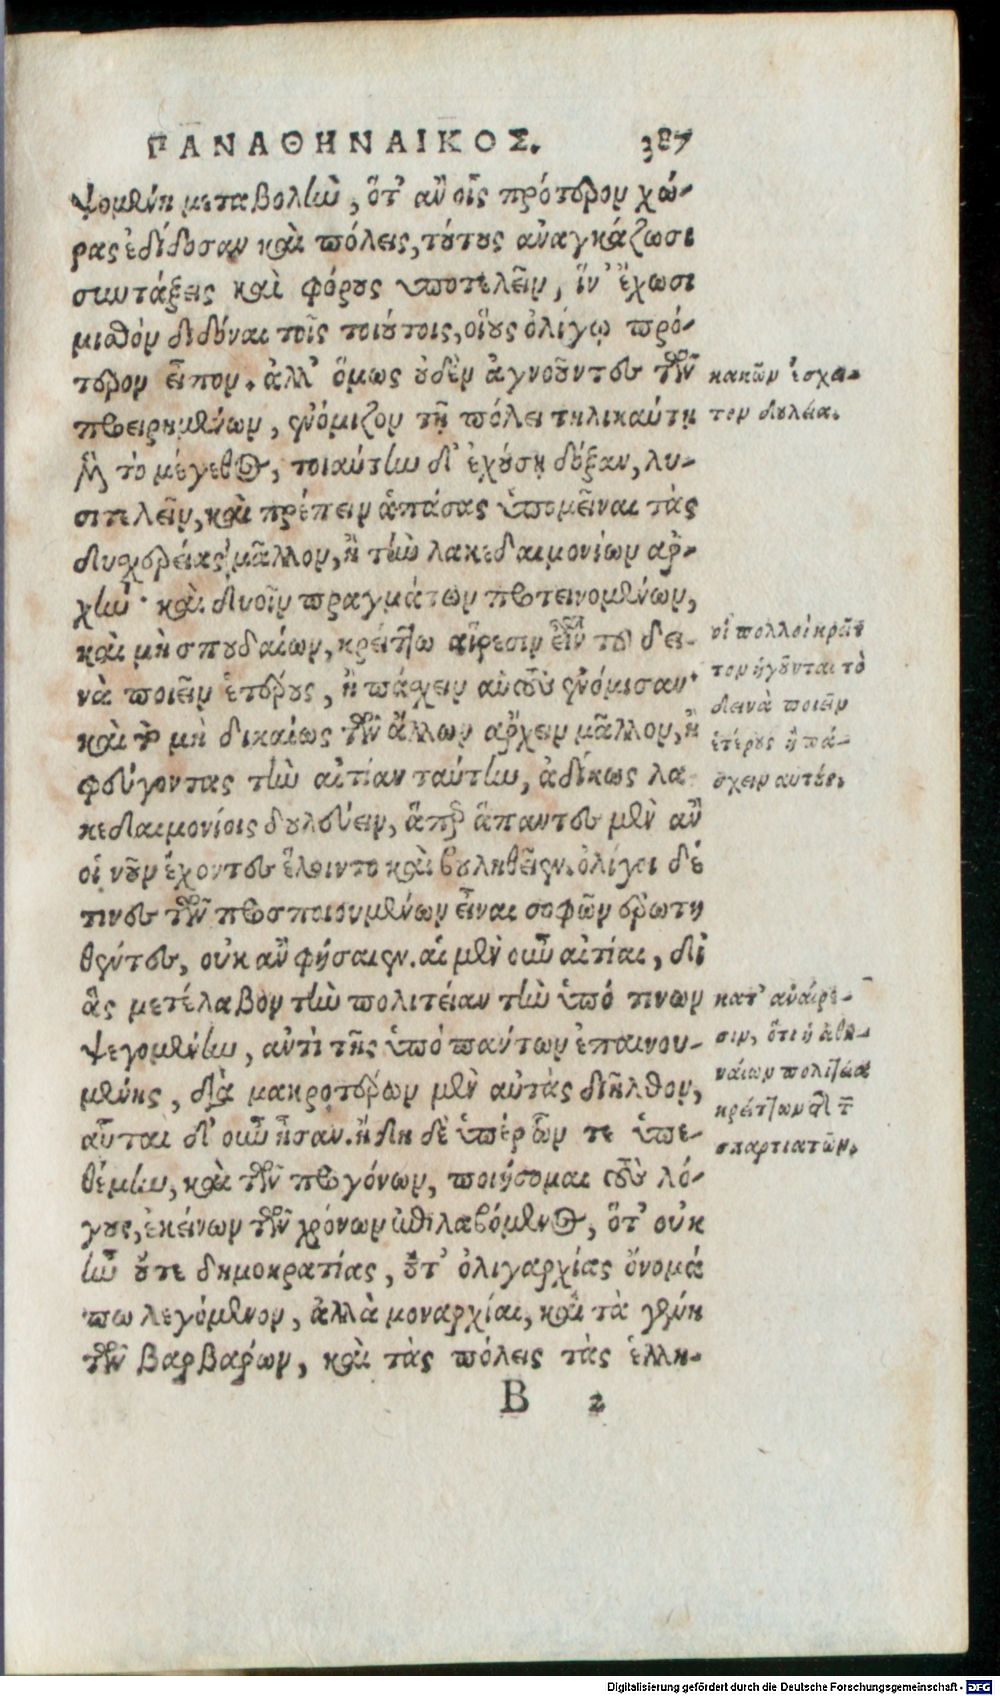 ΠΑΝΑΘΗΝΑΙΚΟΣ. 387
ψομένη μεταβολὴν, ὅτ' ἂν οἷς πρότερον χώ-
ρας ἐδίδοσαν καὶ πόλεις, τούτους ἀναγκάζωσι
συντάξεις καὶ φόρους ὑποτελεῖν, ἵν' ἔχωσι
μισθὸν διδόναι τοῖς τοιούτοις, οἵους ὀλίγῳ πρό-
τερον εἶπον. ἀλλ' ὅμως οὐδὲν ἀγνοοῦντες τῶν
προειρημένων, ἐνόμιζον τῇ πόλει τηλικαύτῃ
μὲν τὸ μέγεθος, τοιαύτην δ' ἐχούσῃ δόξαν, λυ-
σιτελεῖν, καὶ πρέπειν ἁπάσας ὑπομεῖναι τὰς
δυσχερείας μᾶλλον, ἢ τὴν λακεδαιμονίων ἀρ-
χήν· καὶ δυοῖν πραγμάτων προτεινομένων,
καὶ μὴ σπουδαίων, κρείττω αἵρεσιν εἶναι τοῦ δει-
νὰ ποιεῖν ἑτέρους, ἢ πάσχειν αὐτοὺς ἐνόμισαν·
καὶ τὸ μὴ δικαίως τῶν ἄλλων ἄρχειν μᾶλλον, ἢ
φεύγοντας τὴν αἰτίαν ταύτην, ἀδίκως λα
κεδαιμονίοις δουλεύειν, ἅπερ ἅπαντες μὲν ἂν
οἱ νοῦν ἔχοντες ἕλοιντο καὶ βουληθεῖεν. ὀλίγοι δέ
τινες τῶν προσποιουμένων εἶναι σοφῶν ἐρωτη
θέντες, οὐκ ἂν φήσαιεν. αἱ μὲν οὖν αἰτίαι, δι'
ἃς μετέλαβον τὴν πολιτείαν τὴν ὑπό τινων
ψεγομένην, ἀντὶ τῆς ὑπὸ πάντων ἐπαινου-
μένης, διὰ μακροτέρων μὲν αὐτὰς διῆλθον,
αὗται δ' οὖν ἦσαν. ἤδη δὲ ὑπὲρ ὧν τε ὑπε-
θέμην, καὶ τῶν προγόνων, ποιήσομαι τοὺς λό-
γους, ἐκείνων τῶν χρόνων ἐπιλαβόμενος, ὅτ' οὐκ
ἦν οὔτε δημοκρατίας, οὔτ' ὀλιγαρχίας ὄνομά
πω λεγόμενον, ἀλλὰ μοναρχίαι, καὶ τὰ γένη
τῶν βαρβάρων, καὶ τὰς πόλεις τὰς ἑλλη-
B 2
κακῶν ἔσχα-
τον δουλεία.
οἱ πολλοὶ κρεῖτ
τον ἡγοῦνται τὸ
δεινὰ ποιεῖν
ἑτέρους ἢ πά-
σχειν αὐτούς.
κατ' ἀναίρε-
σιν, ὅτι ἡ ἀθη-
ναίων πολιτεία
κρείττων ἐστὶ τῆς
σπαρτιατῶν.
Digitalisierung gefördert durch die Deutsche Forschungsgemeinschaft - DFG